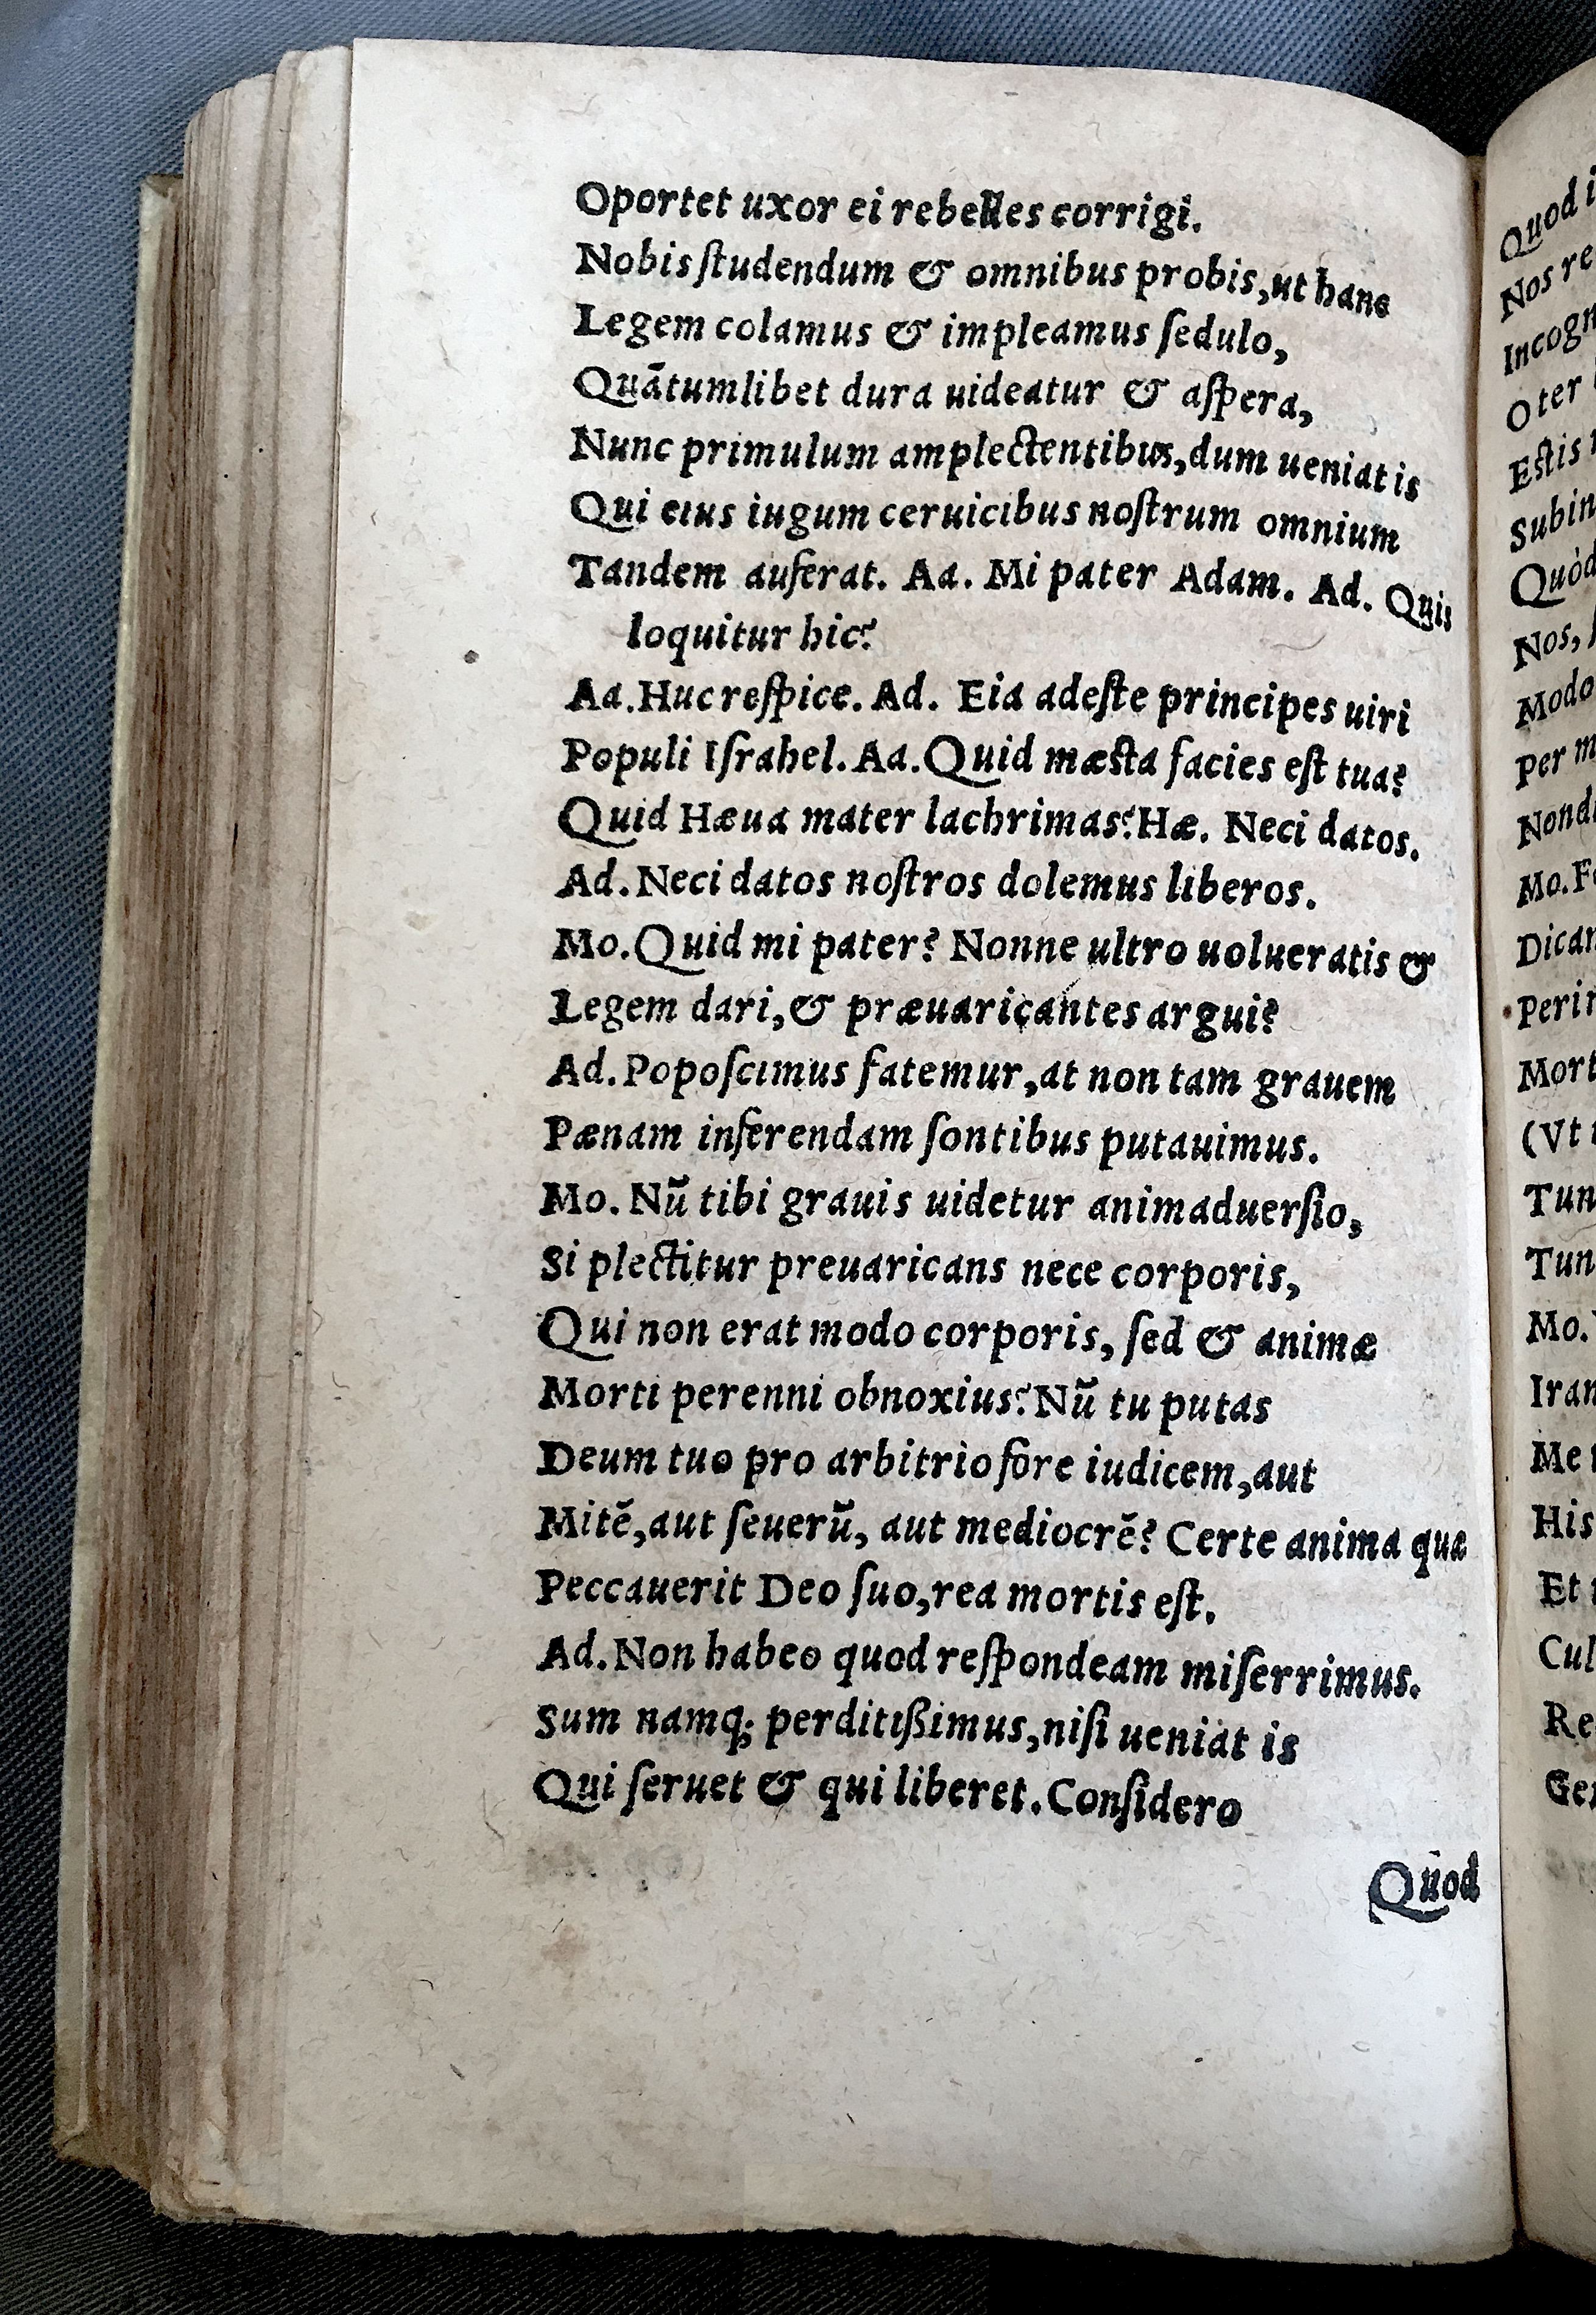 Oportet uxor ei rebelles corrigi.
Nobis ſtudendum & omnibus probis, ut hanc
Legem colamus & impleamus ſedulo,
Quātumlibet dura uideatur & aſpera,
Nunc primulum amplectentibus, dum ueniat is
Qui eius iugum ceruicibus noſtrum omnium
Tandem auferat. Aa. Mi pater Adam. Ad. Quis
loquitur hic?
Aa. Huc reſpice. Ad. Eia adeſte principes uiri
Populi Iſrahel. Aa. Quid mæſta facies eſt tua?
Quid Hæua mater lachrimas? Hæ. Neci datos.
Ad. Neci datos noſtros dolemus liberos.
Mo. Quid mi pater? Nonne ultro uolueratis &
Legem dari, & præuaricantes argui?
Ad. Popoſcimus fatemur, at non tam grauem
Pænam inferendam ſontibus putauimus.
Mo. Nū tibi grauis uidetur animaduerſio,
Si plectitur preuaricans nece corporis,
Qui non erat modo corporis, ſed & animæ
Morti perenni obnoxius? Nū tu putas
Deum tuo pro arbitrio fore iudicem, aut
Mitē, aut ſeuerū, aut mediocrē? Certe anima quæ
Peccauerit Deo ſuo, rea mortis eſt.
Ad. Non habeo quod reſpondeam miſerrimus.
Sum namq; perditißimus, niſi ueniat is
Qui ſeruet & qui liberet. Conſidero
Quod
Quod
Nos
Incog
O ter
Eſtis
Subin
Quòd
Nos,
Modo
Per
Mo.
Dican
Mort
(Vt
Tun
Tun
Mo.
Me
His
Et
Cul
Re